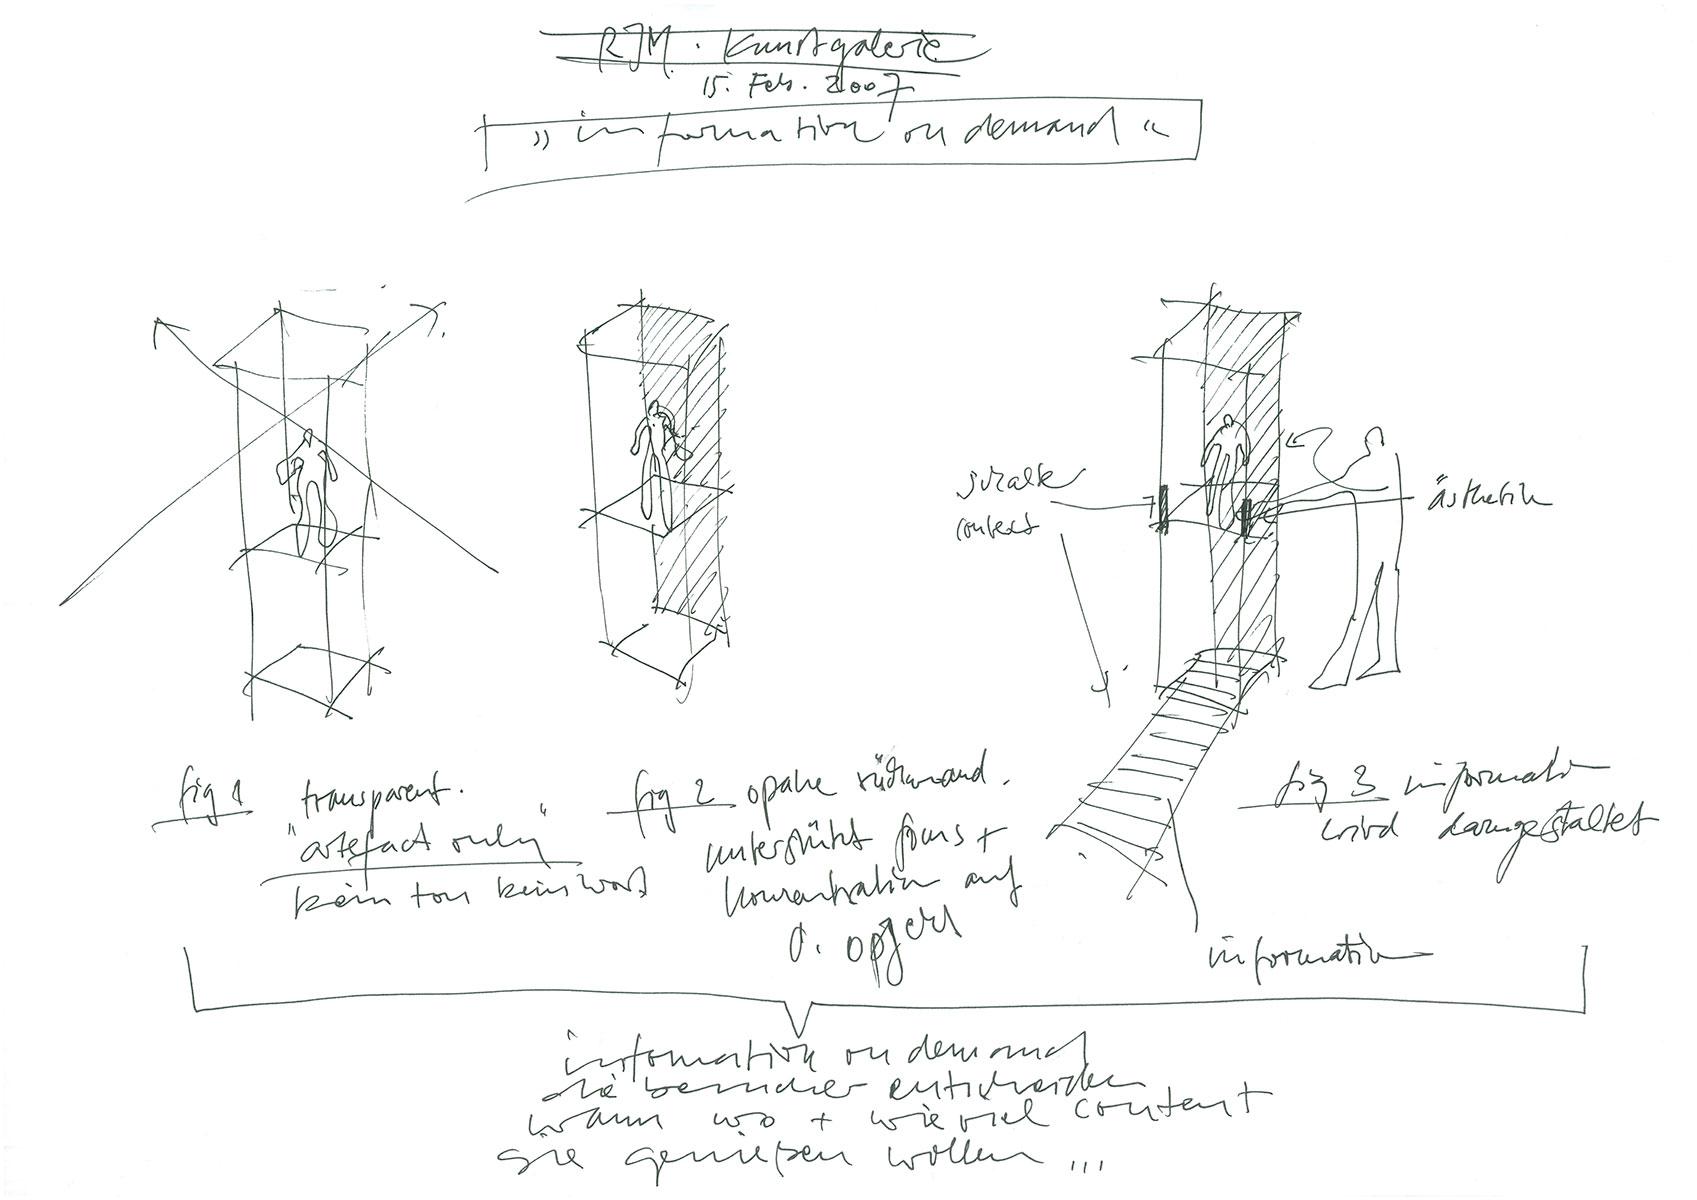 RJM. Kunstgalerie
15. Feb. 2007
„ information on demand “
soziale
context
ästhetik
fig 1 transparent.
"artefact only"
kein ton kein Wort
fig 2 opake rückwand.
unterstützt focus +
konzentration auf
d. objekt
fig 3 information
wird dazugestaltet
information
information on demand
die besucher entscheiden
wann wo + wie viel content
sie genießen wollen ...